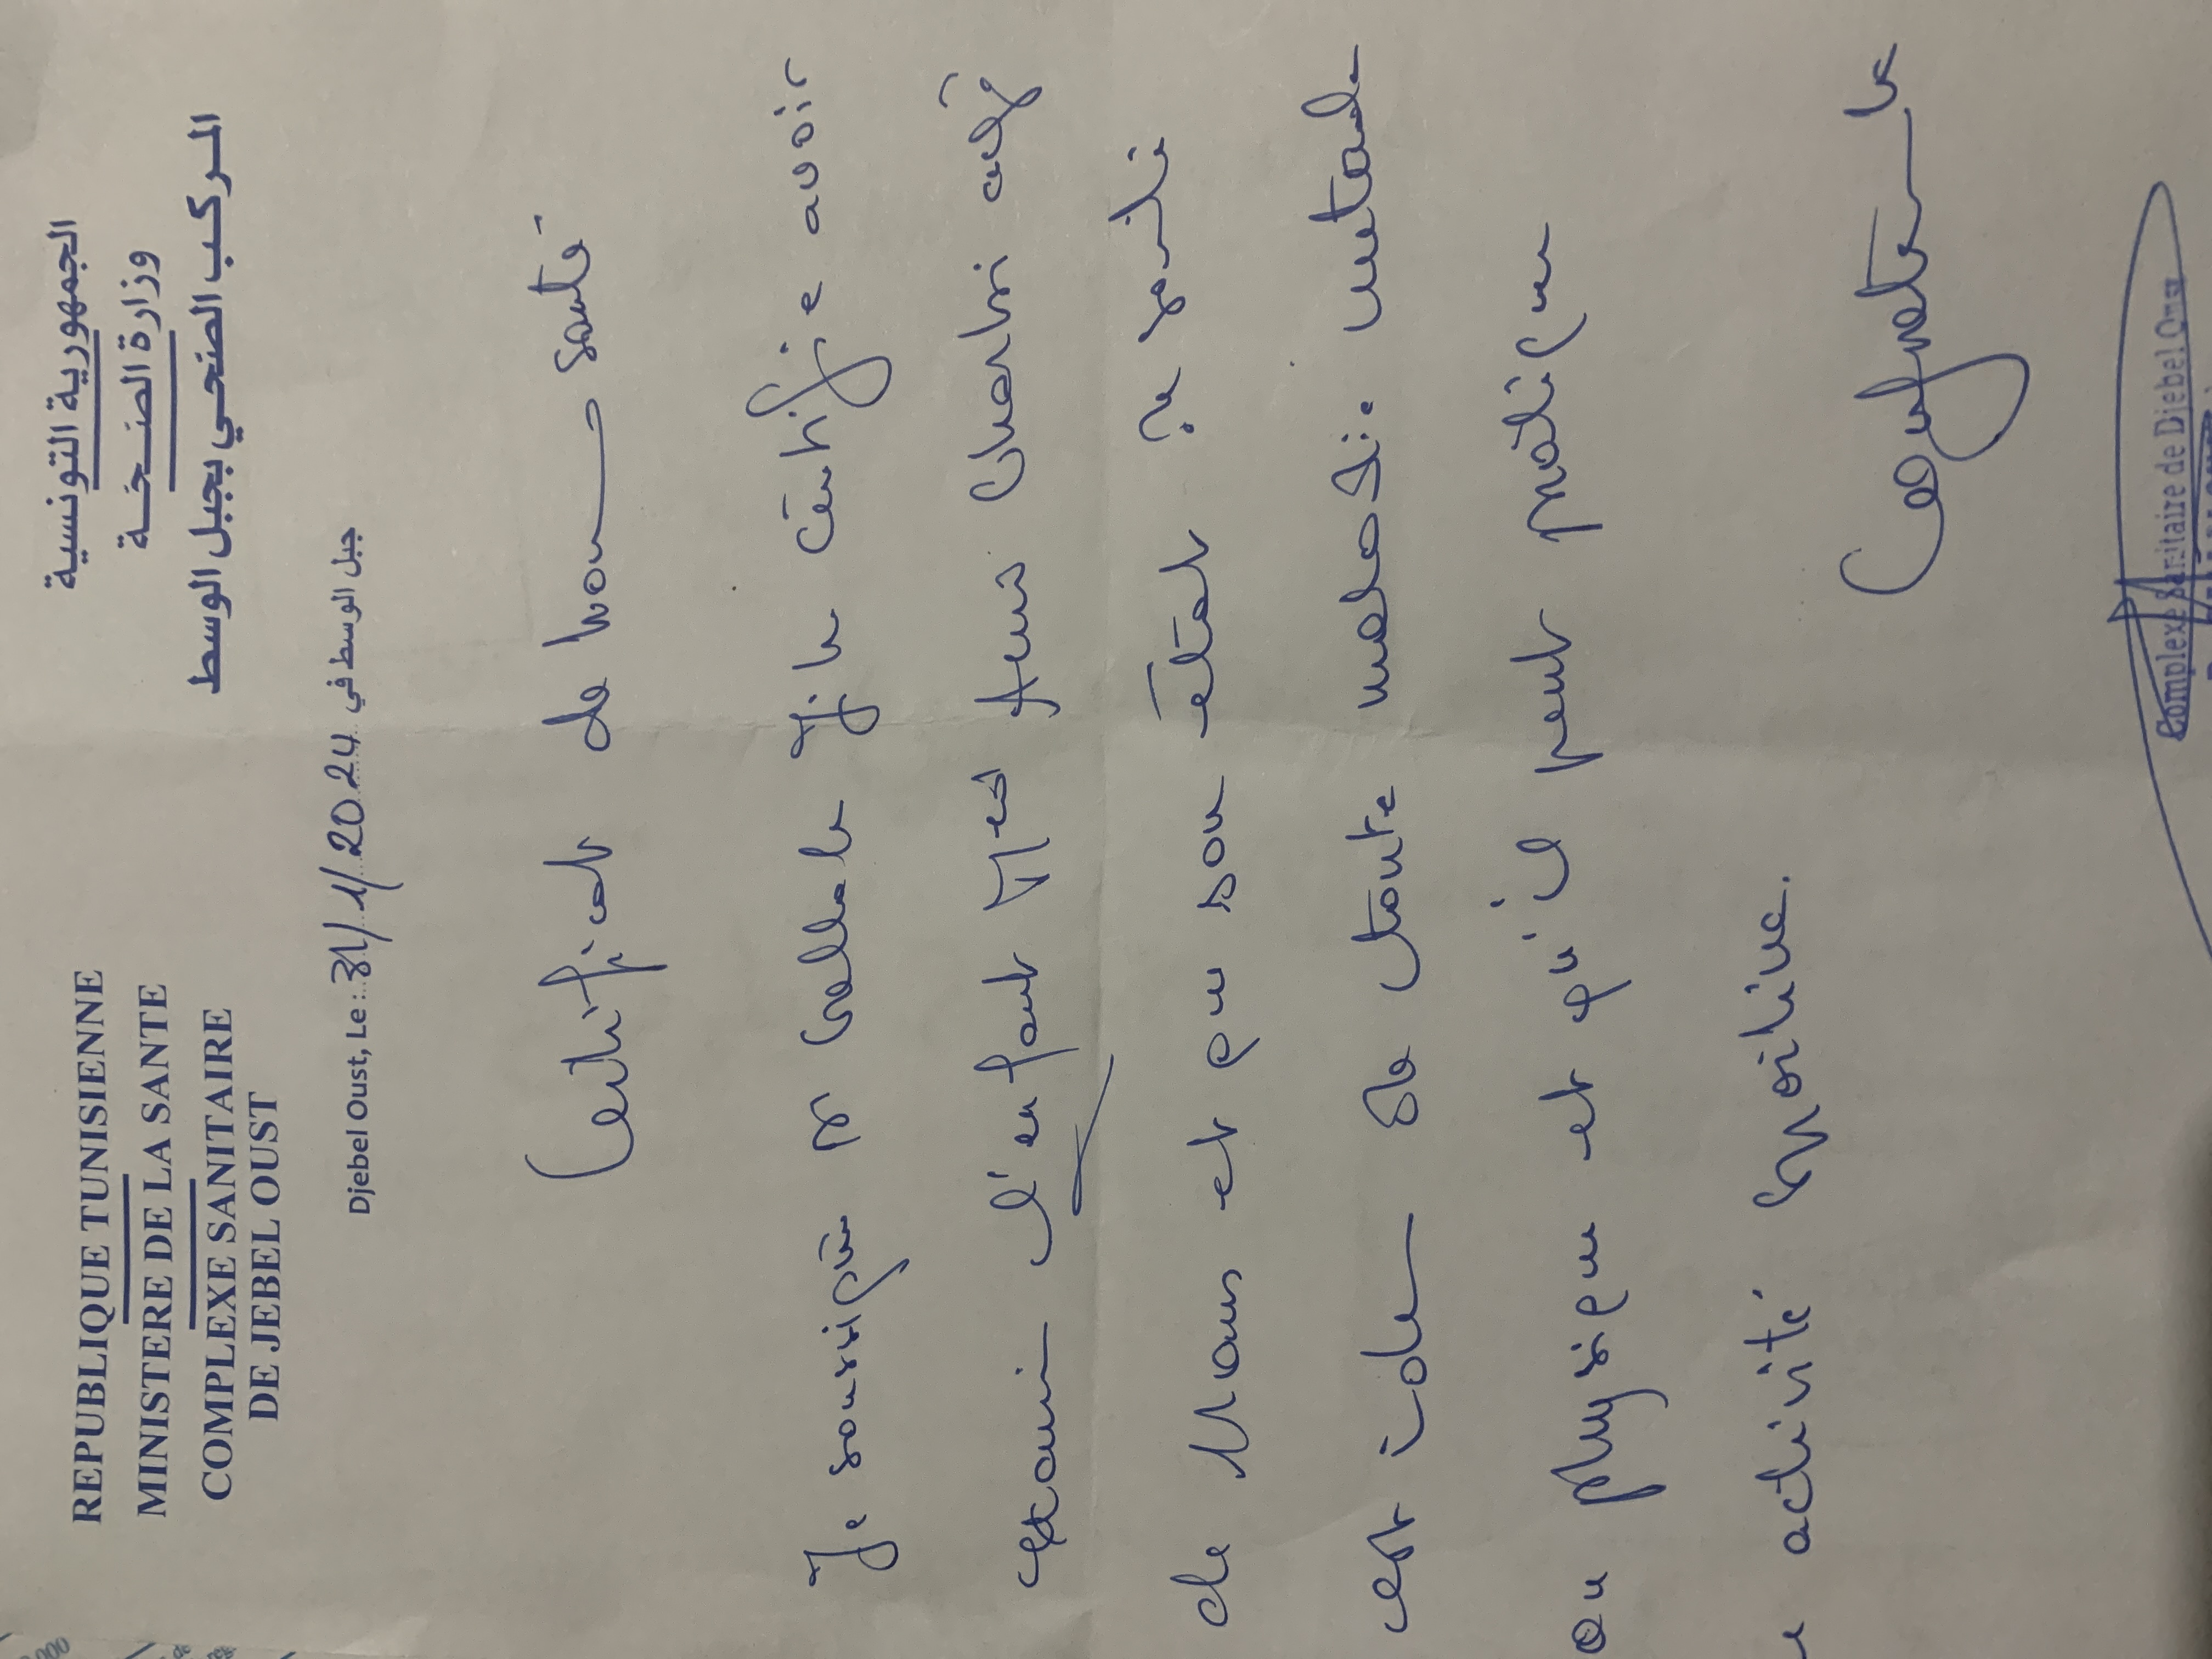 REPUBLIQUE TUNISIENNE
MINISTERE DE LA SANTE
COMPLEXE SANITAIRE
DE JEBEL OUST
الجمهورية التونسية
وزارة الصحة
المركب الصحي بجبل الوسط
Djebel Oust, Le : 31/1/2024 جبل الوسط في
Certificat de bonne santé
Je soussigné Dr certifie avoir
examiné l'enfant Med
de et que son état de santé
est de toute maladie mentale
ou physique et qu'il peut pratiquer
activité
Complexe Sanitaire de Djebel Oust